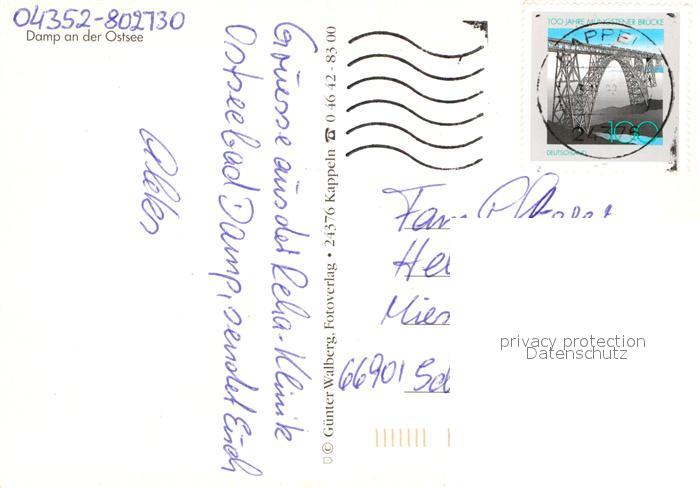 04352-802730
Damp an der Ostsee
Grüsse aus der Reha-Klinik
Ostseebad Damp, sendet Euch
© Günter Walberg, Fotoverlag • 24376 Kappeln ☎ 0 46 42 - 83 00
100 JAHRE MÜNGSTENER BRÜCKE
KAPPEL
24376
100
DEUTSCHLAND
Fam
He
Mies
66901 Sc
privacy protection
Datenschutz